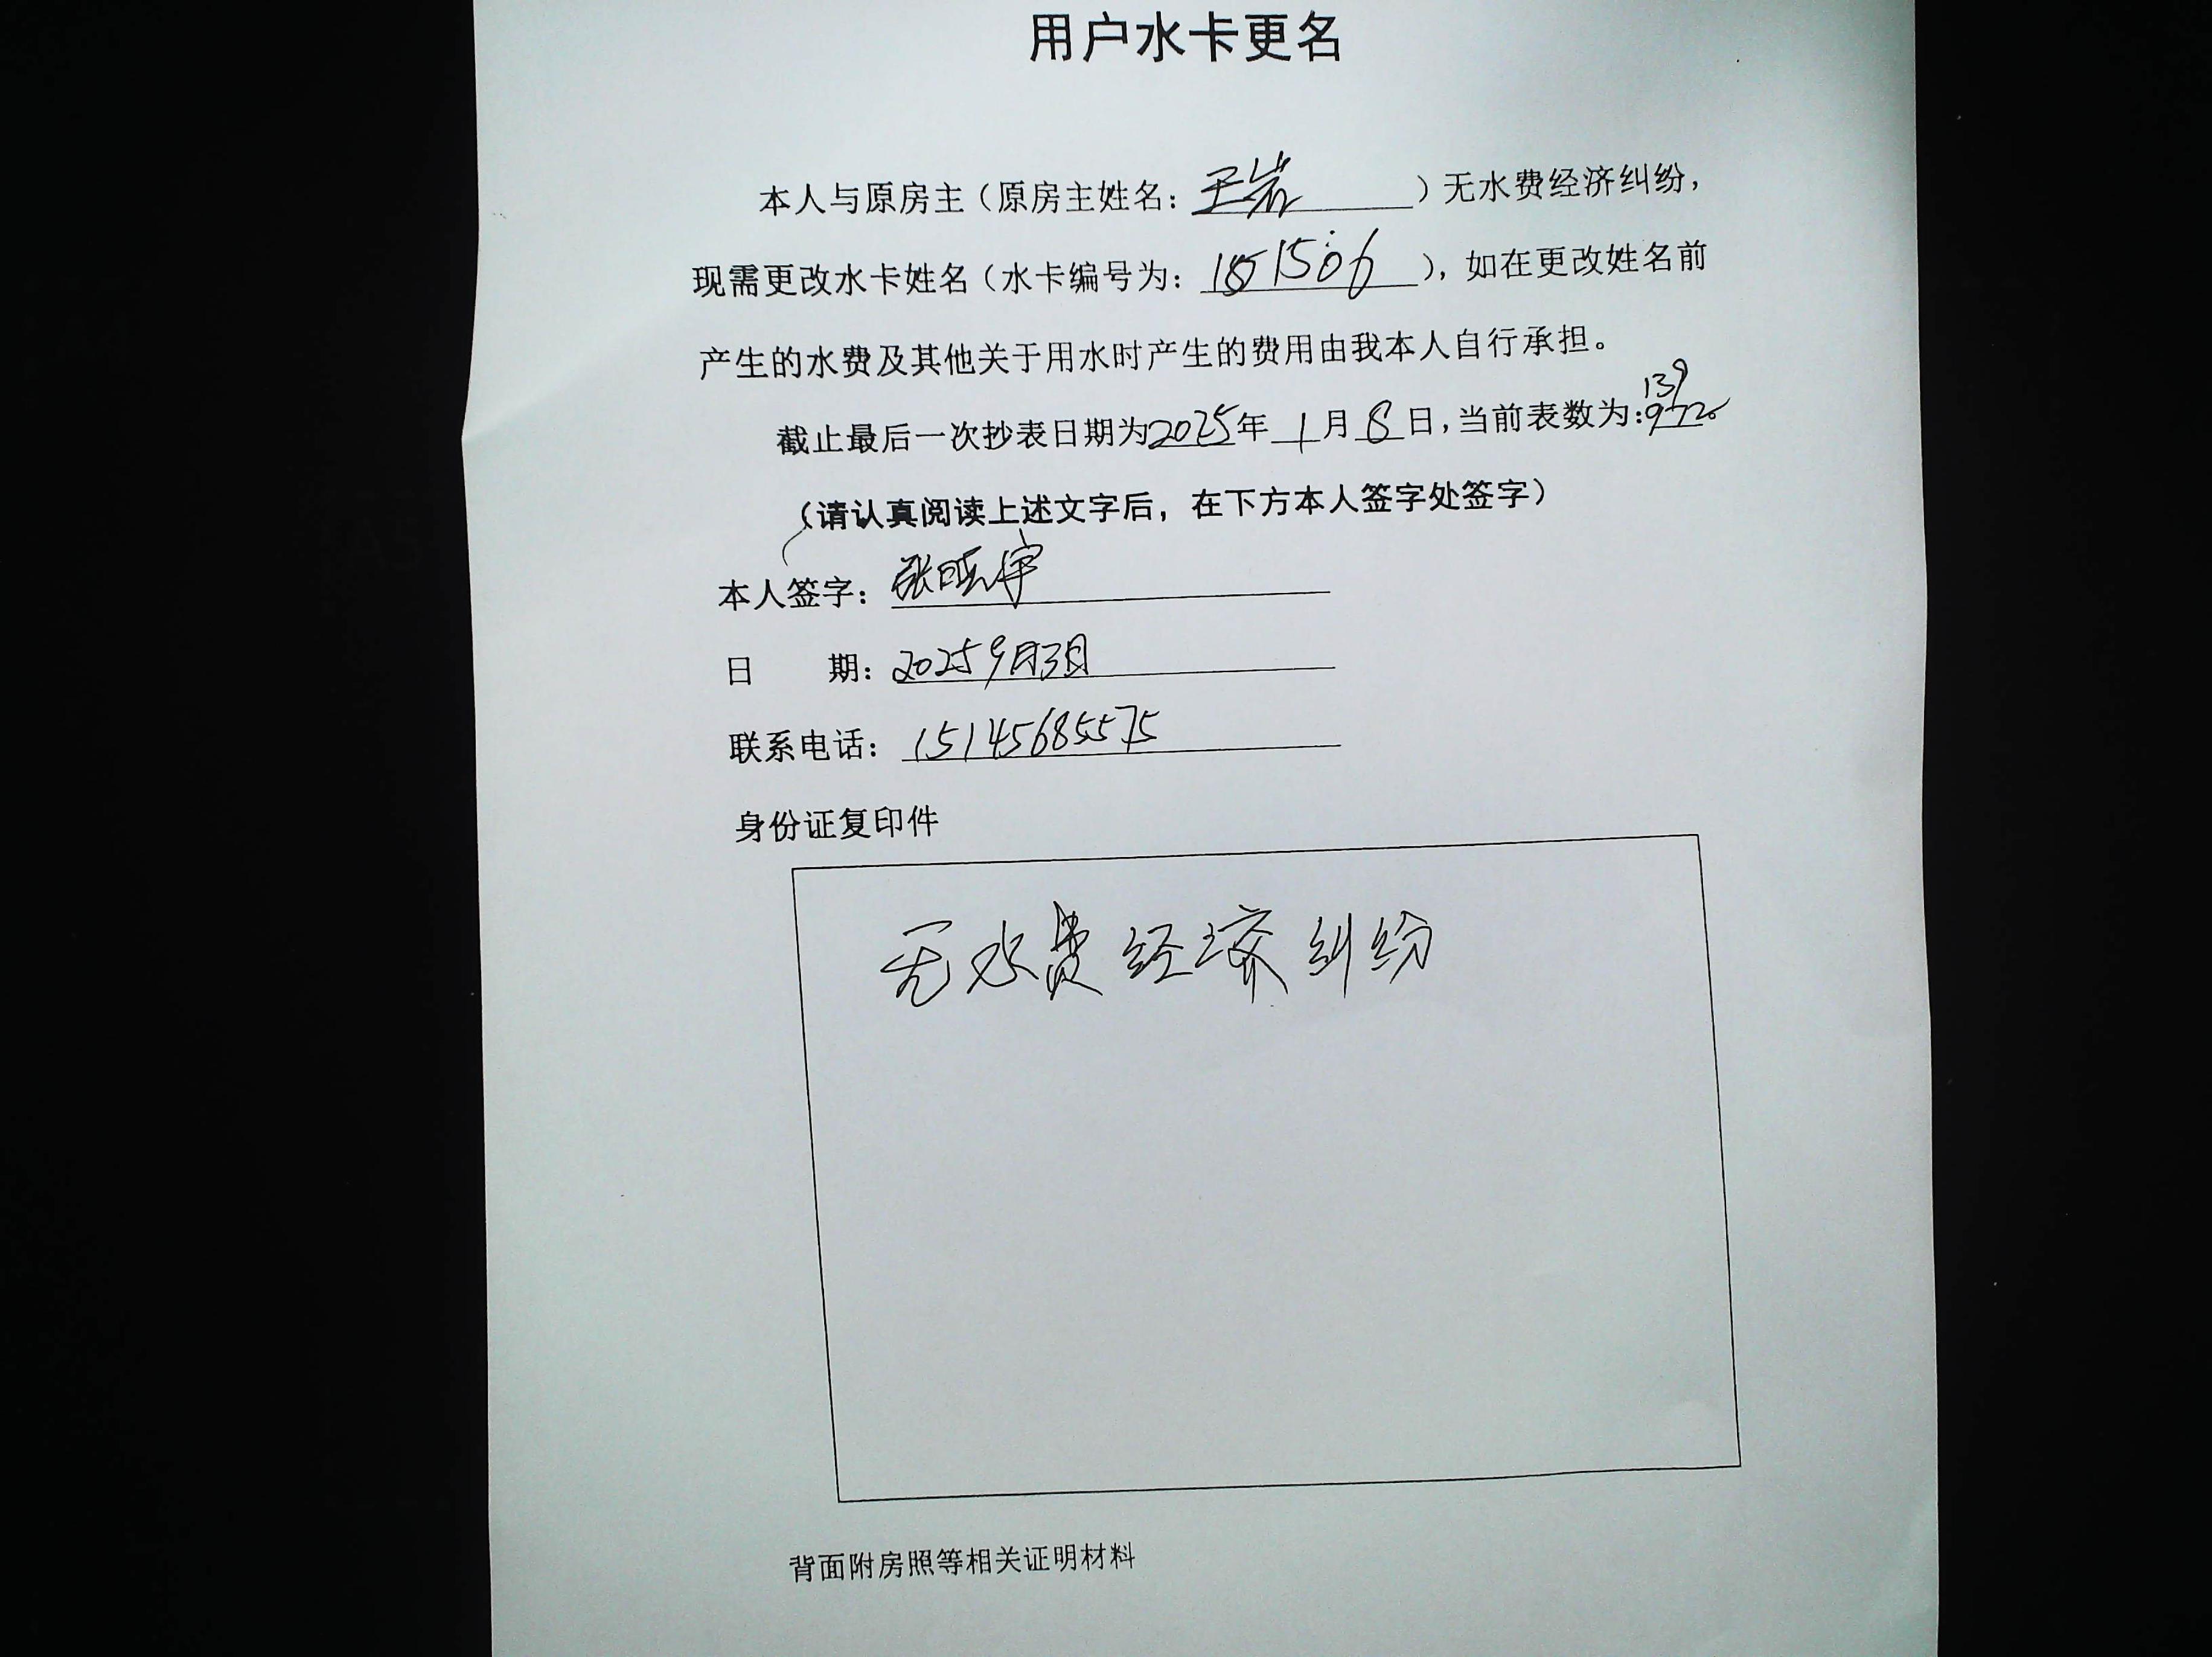 用户水卡更名
本人与原房主（原房主姓名：王岩）无水费经济纠纷，
现需更改水卡姓名（水卡编号为：151506），如在更改姓名前
产生的水费及其他关于用水时产生的费用由我本人自行承担。
139
截止最后一次抄表日期为2025年1月8日，当前表数为：
（请认真阅读上述文字后，在下方本人签字处签字）
本人签字：张晓宇
日 期：2025 9月3日
联系电话：15145685575
身份证复印件
无水费经济纠纷
背面附房照等相关证明材料